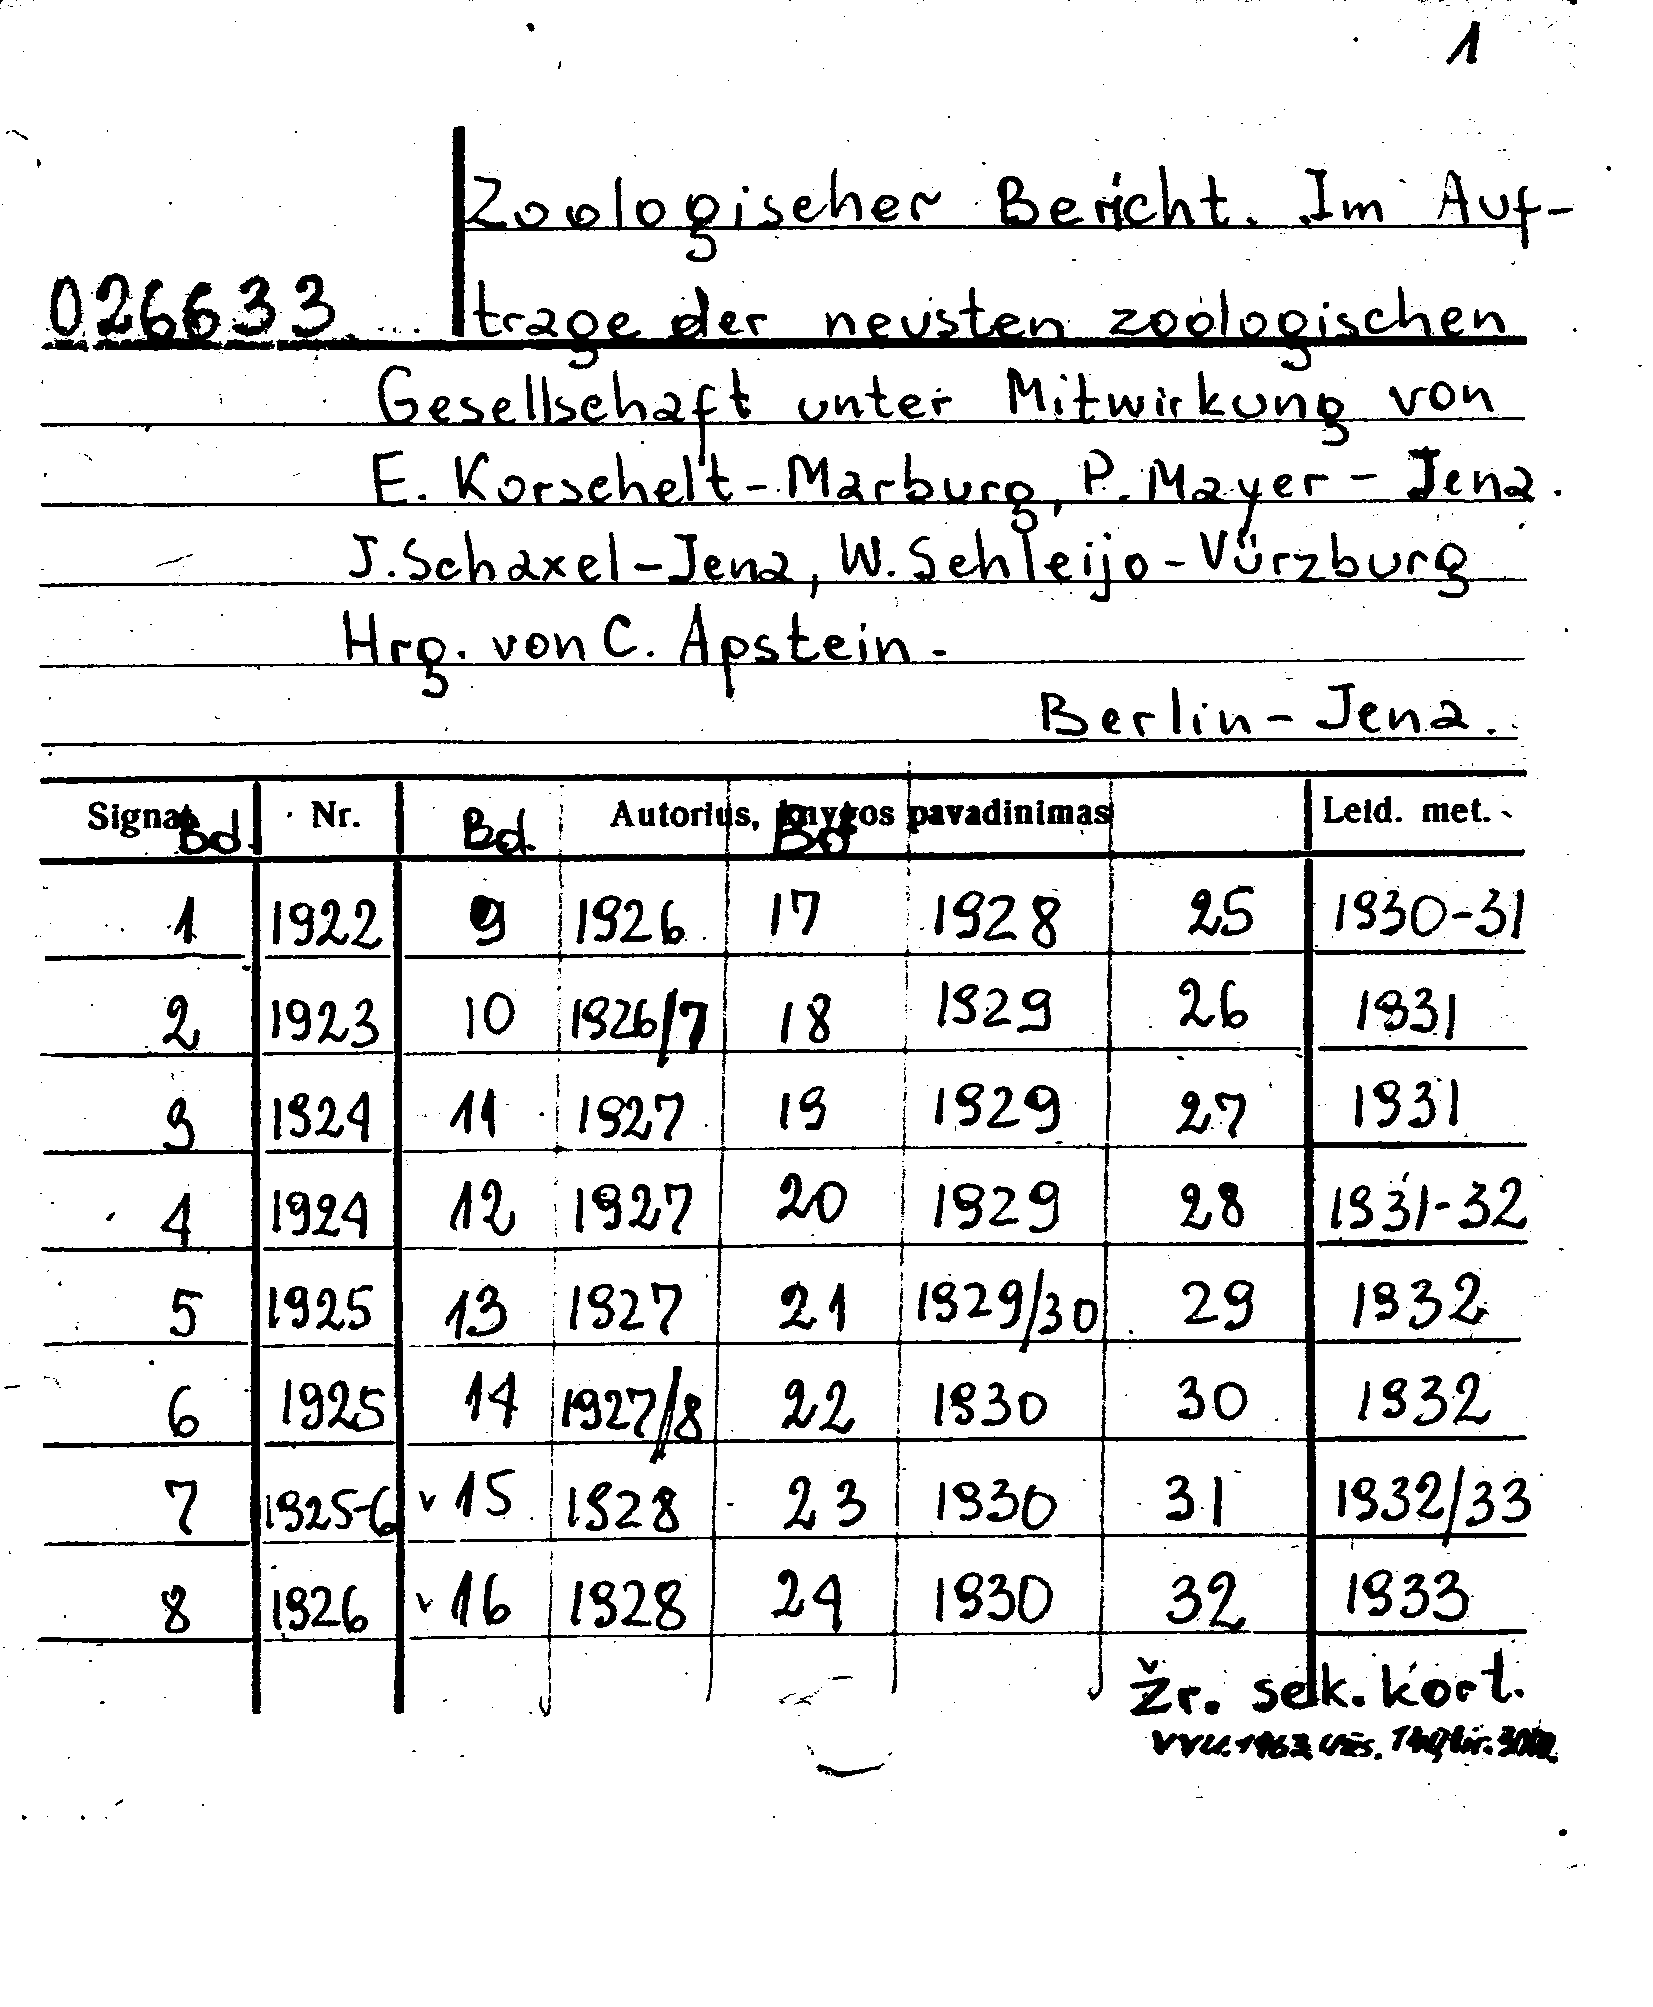 1
Zoologischer Bericht. Im Auf-
026633 trage der neusten zoologischen
Gesellschaft unter Mitwirkung von
E. Korschelt-Marburg, P. Mayer - Jena.
J. Schaxel-Jena, W. Schleijo-Vürzburg
Hrg. von C. Apstein.-
Berlin-Jena.
Signat. Nr. Autorius, knygos pavadinimas Leid. met.
Bd. Bd. Bd
1 1922 9 1926 17 1928 25 1930-31
2 1923 10 1926/7 18 1929 26 1931
3 1924 11 1927 19 1929 27 1931
4 1924 12 1927 20 1929 28 1931-32
5 1925 13 1927 21 1929/30 29 1932
6 1925 14 1927/8 22 1930 30 1932
7 1925-6 v 15 1928 23 1930 31 1932/33
8 1926 v 16 1928 24 1930 32 1933
Žr. sek. kort.
VVU. 1963